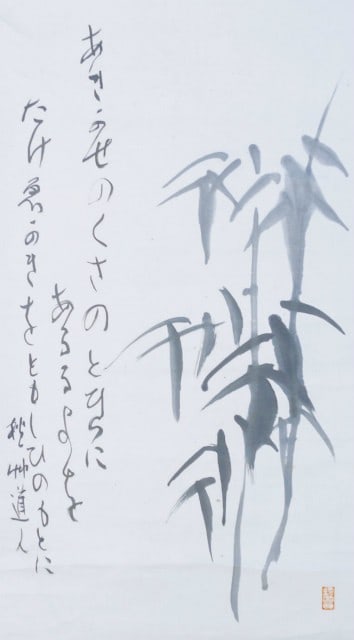 あきかせのくさのとひらに
あるるよを
たけゑかきをともしひのもとに
秋艸道人